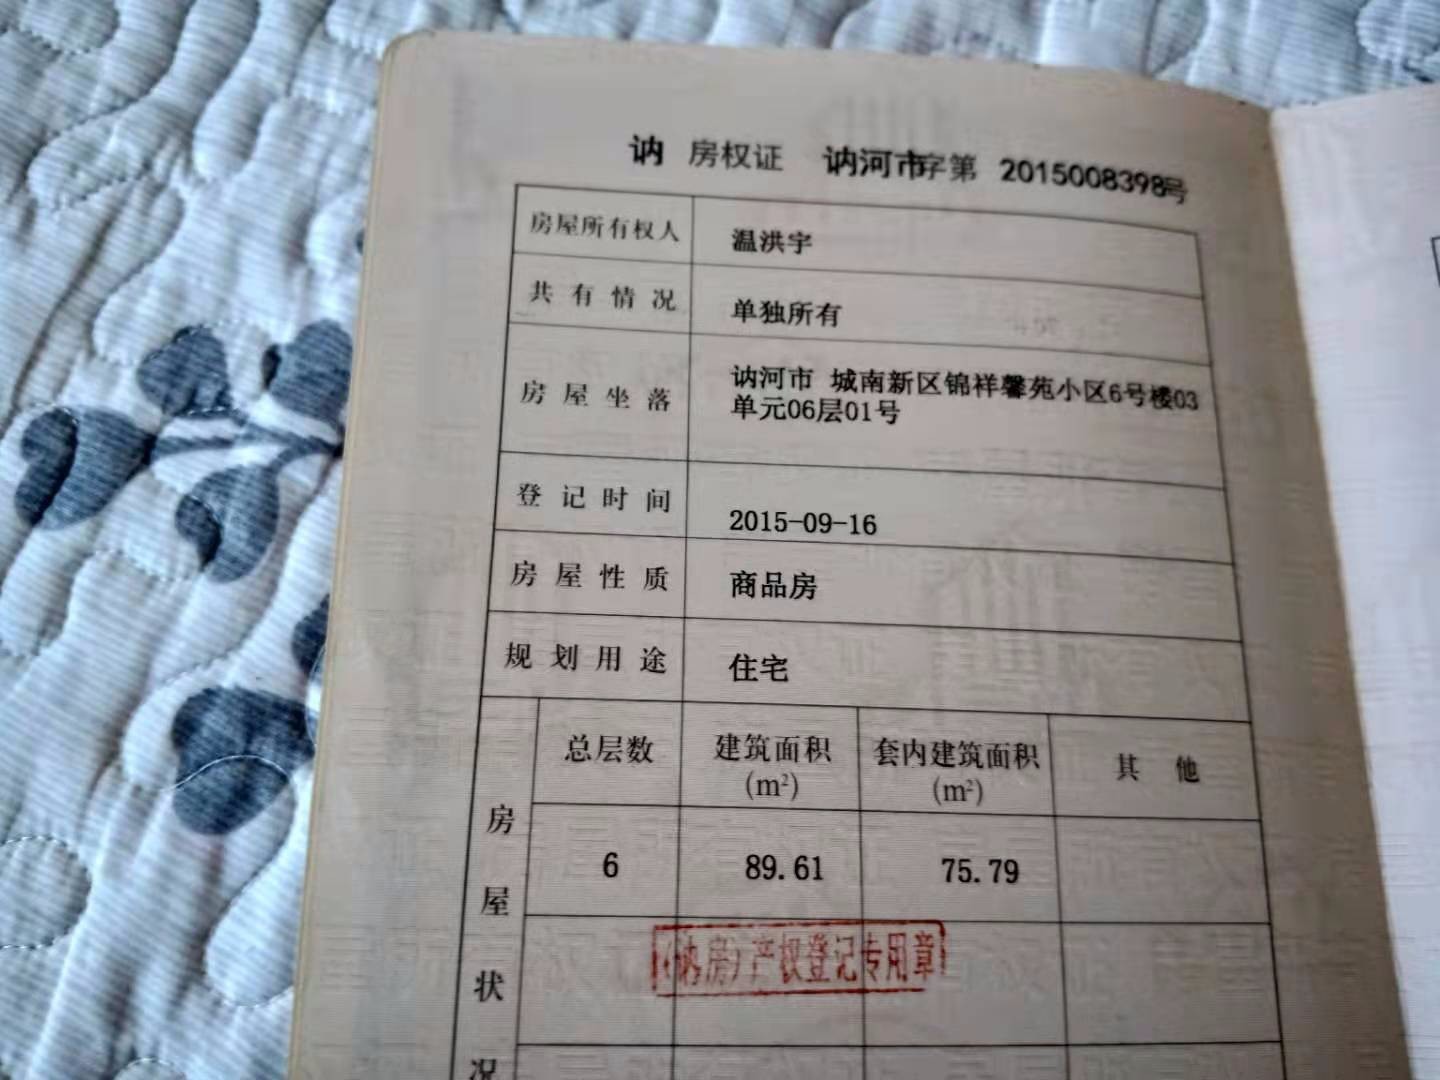 讷 房权证 讷河市字第 2015008398号
房屋所有权人 温洪宇
共有情况 单独所有
房屋坐落 讷河市 城南新区锦祥馨苑小区6号楼03
单元06层01号
登记时间 2015-09-16
房屋性质 商品房
规划用途 住宅
房屋状况
总层数 建筑面积 套内建筑面积 其他
(m²) (m²)
6 89.61 75.79
(讷房)产权登记专用章